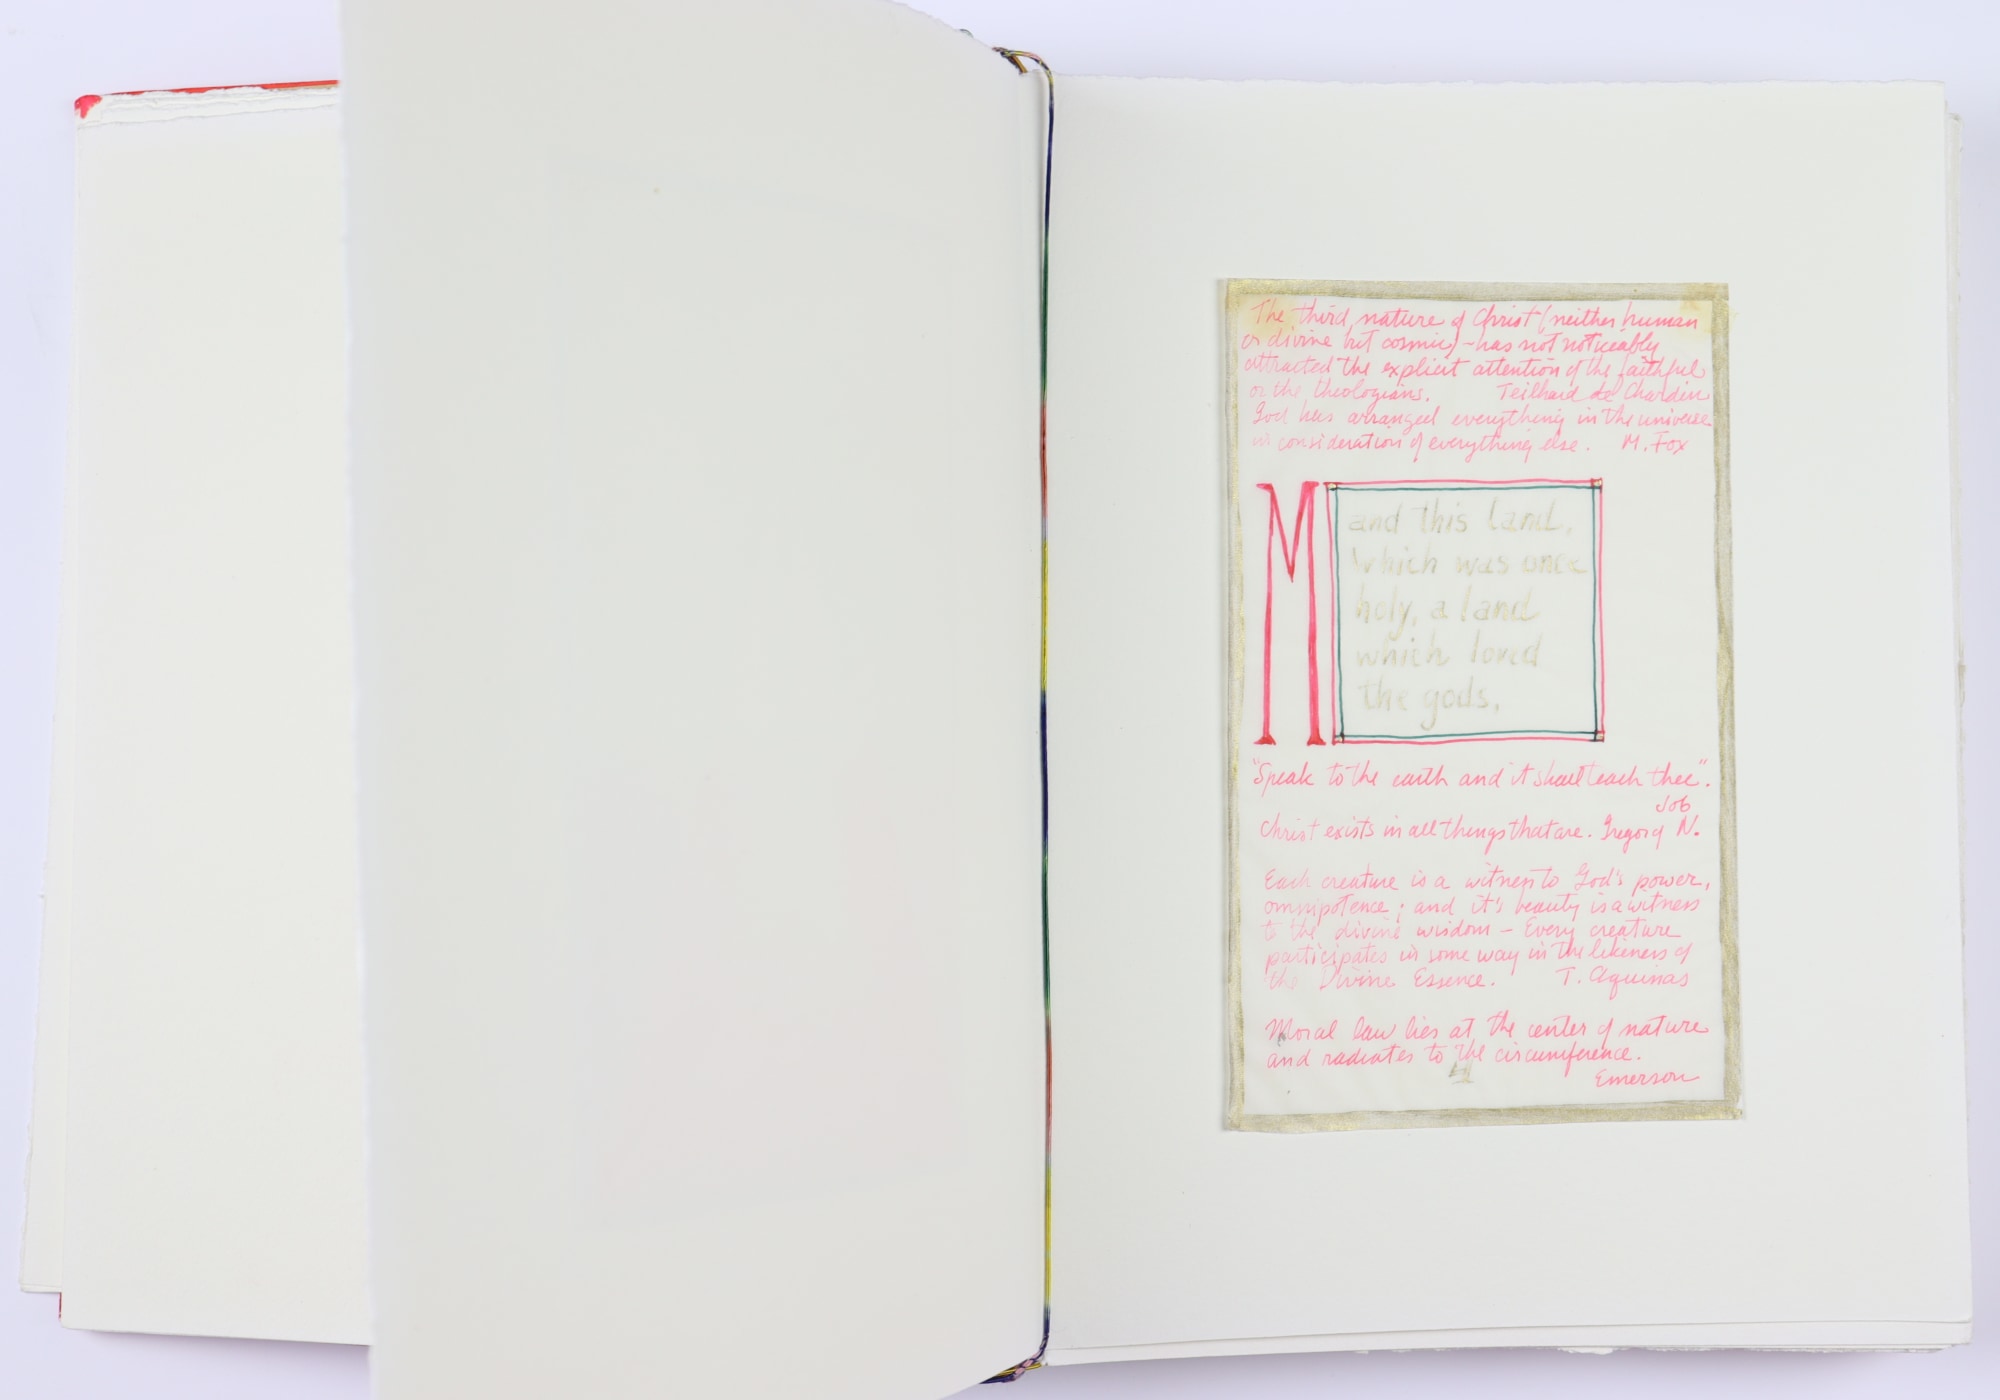 The third nature of Christ (neither human
or divine but cosmic) - has not noticeably
attracted the explicit attention of the faithful
or the theologians. Teilhard de Chardin
God has arranged everything in the universe
in consideration of everything else. M. Fox
M
and this land,
which was once
holy, a land
which loved
the gods.
"Speak to the earth and it shall teach thee".
Job
Christ exists in all things that are. Gregory N.
Each creature is a witness to God's power,
omnipotence; and it's beauty is a witness
to the divine wisdom - Every creature
participates in some way in the likeness of
the Divine Essence. T. Aquinas
Moral law lies at the center of nature
and radiates to the circumference.
Emerson